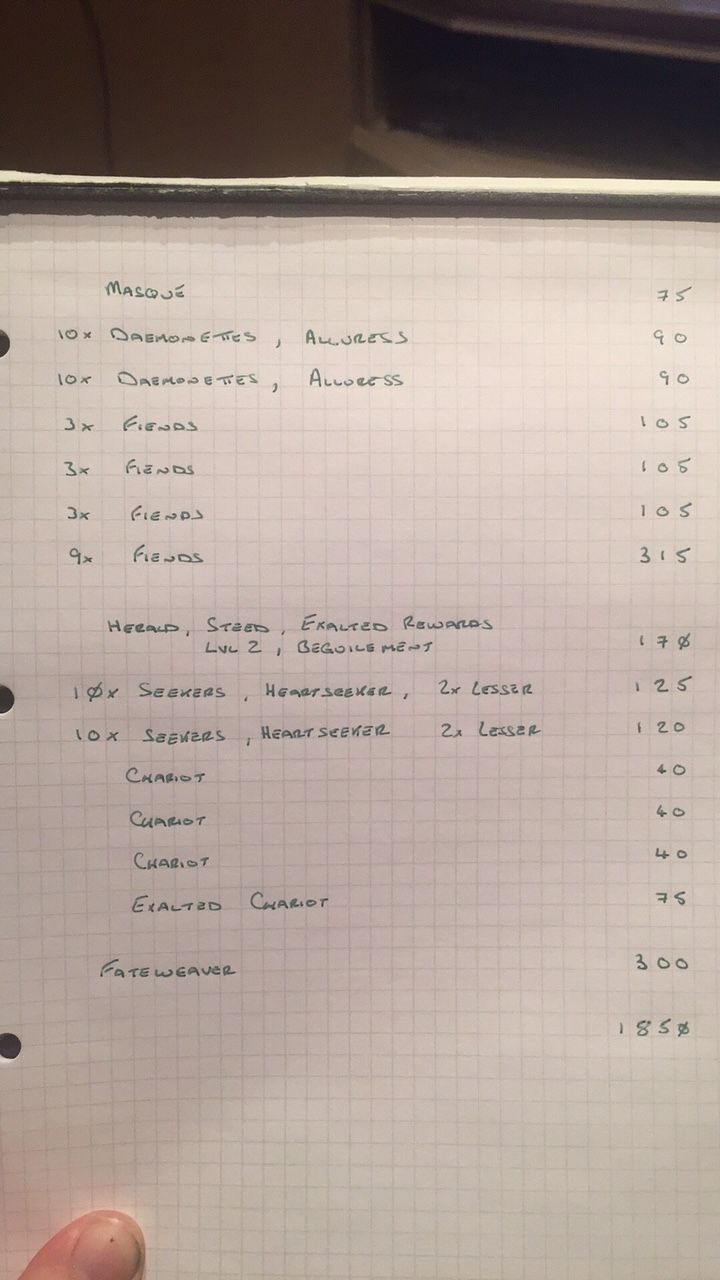 MASQUÉ 75
10x DAEMONETTES, ALLURESS 90
10x DAEMONETTES, ALLURESS 90
3x FIENDS 105
3x FIENDS 105
3x FIENDS 105
9x FIENDS 315
HERALD, STEED, EXALTED REWARDS
LVL 2, BEGUILEMENT 170
10x SEEKERS, HEARTSEEKER, 2x LESSER 125
10x SEEKERS, HEARTSEEKER 2x LESSER 120
CHARIOT 40
CHARIOT 40
CHARIOT 40
EXALTED CHARIOT 75
FATEWEAVER 300
1850